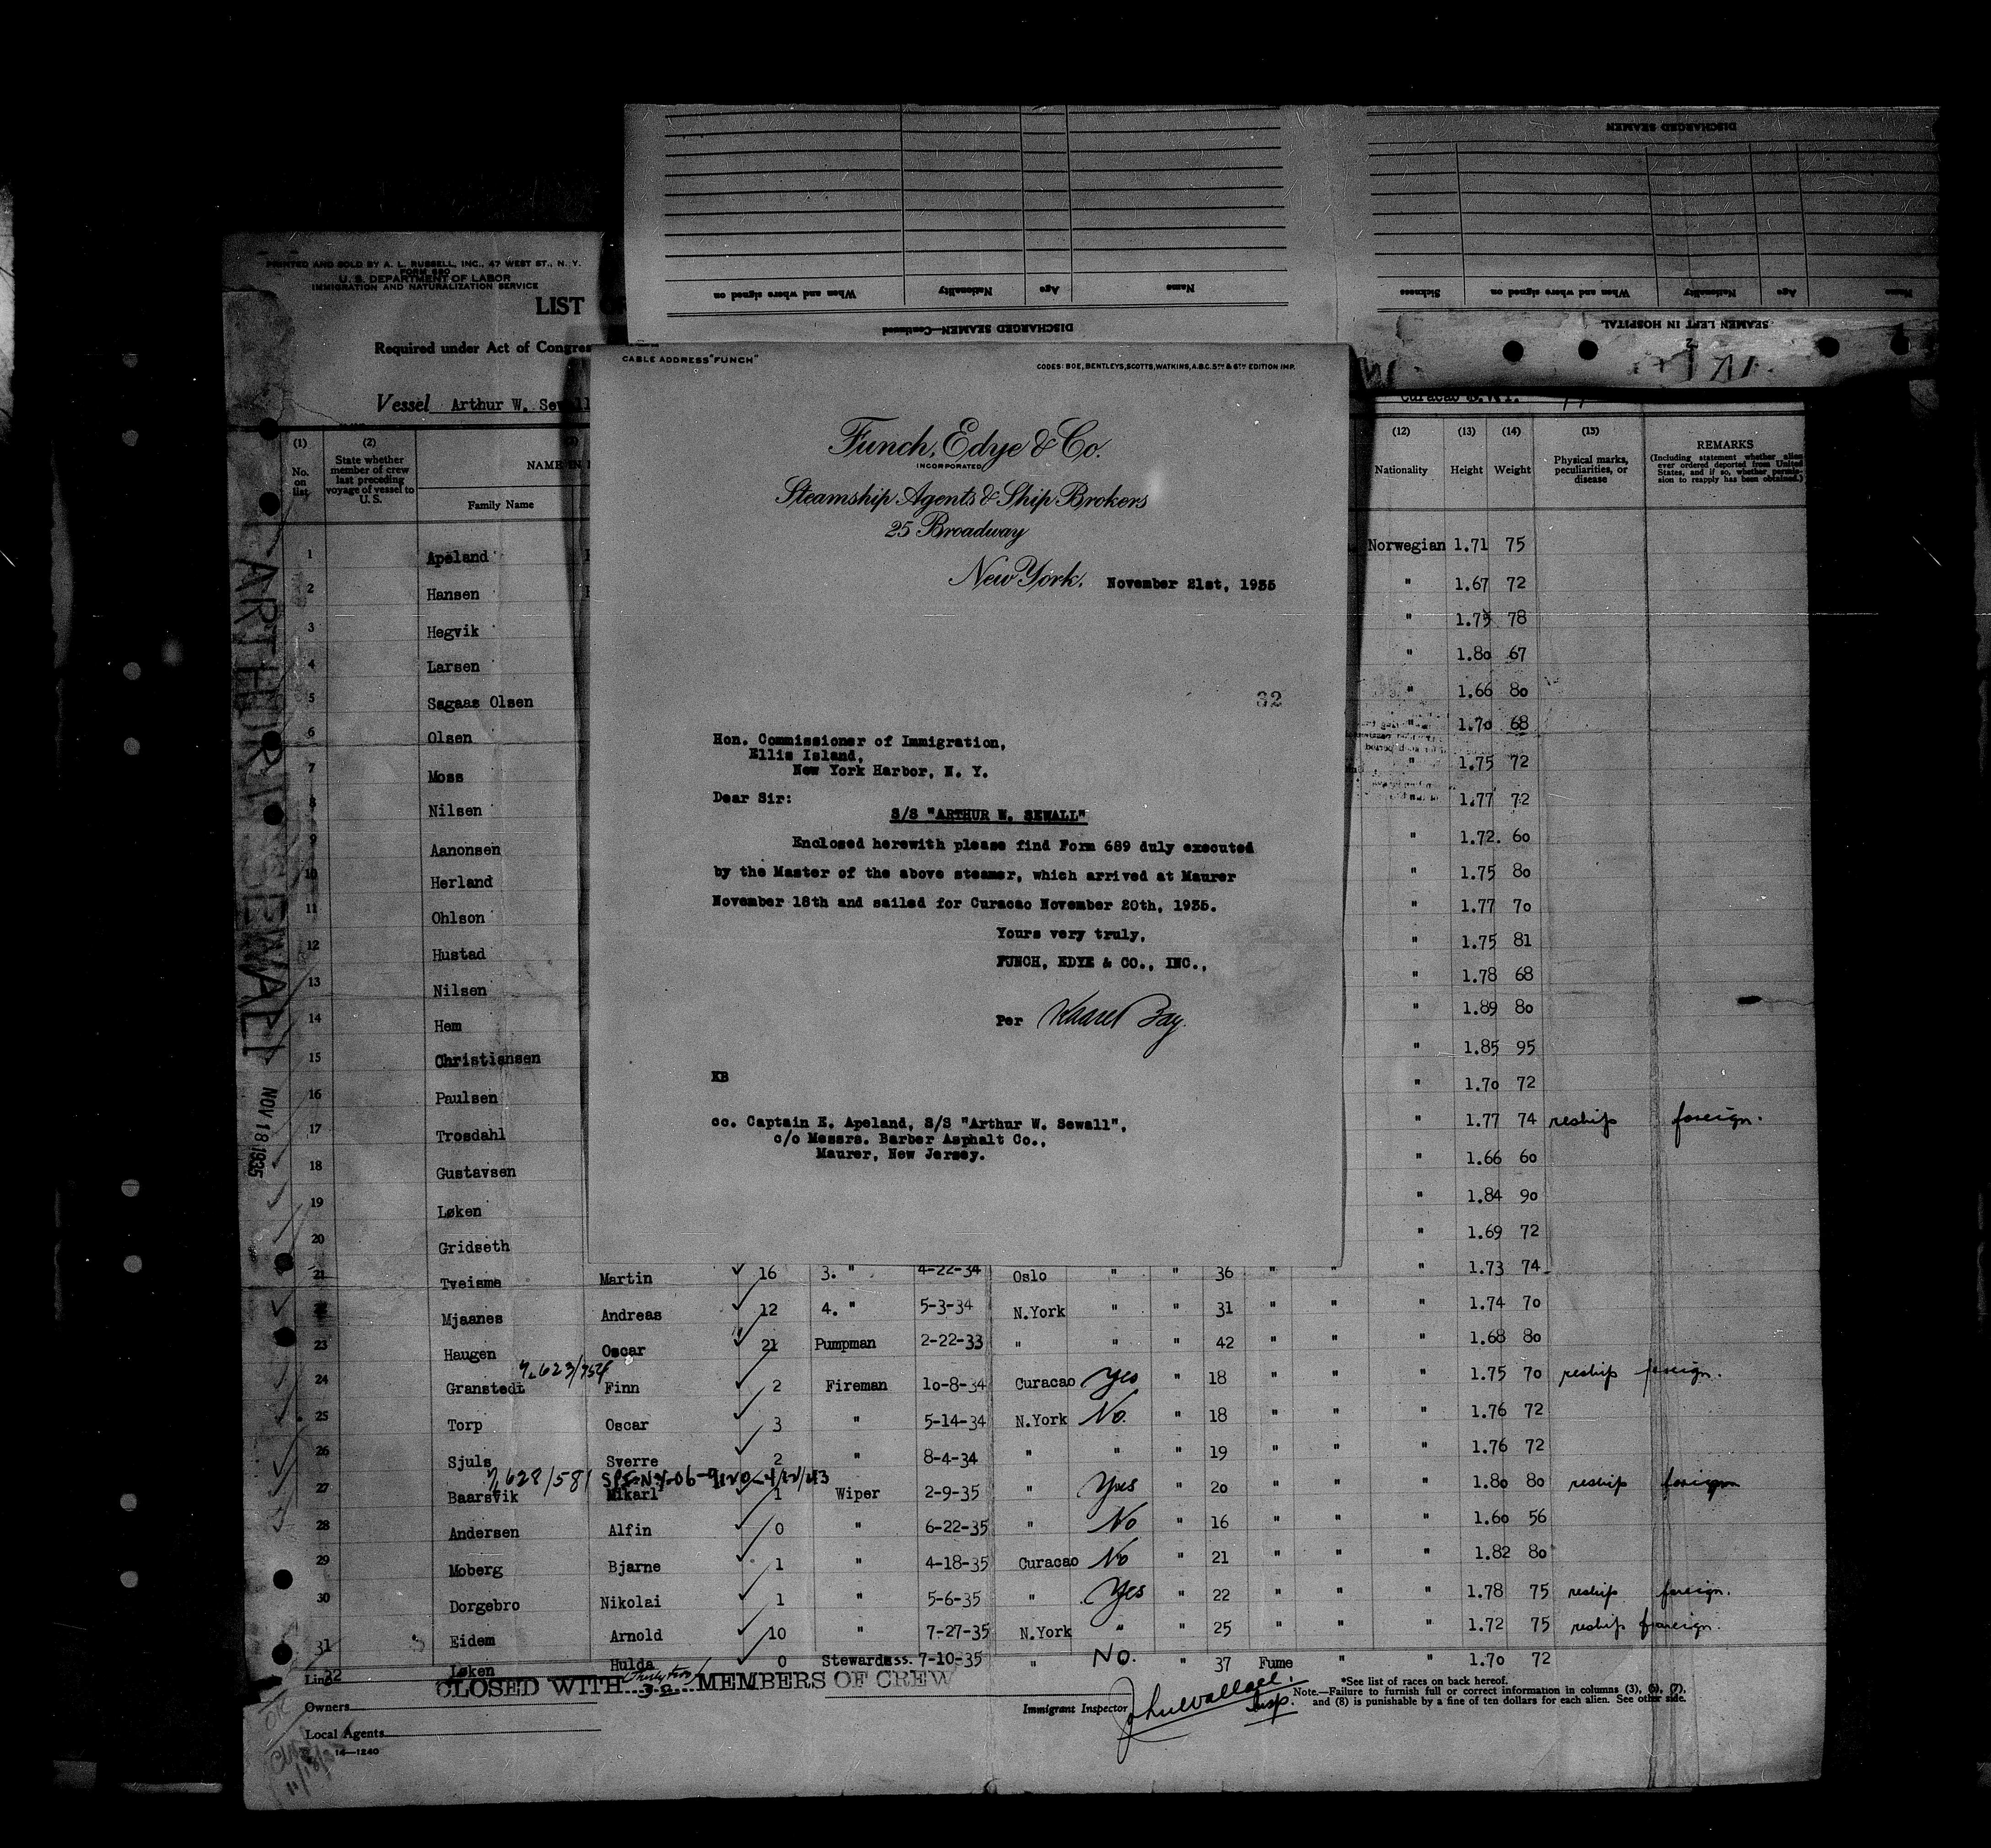 DISCHARGED SEAMEN
When and where signed on Nationality Age Name
DISCHARGED SEAMEN—Continued
Sickness When and where signed on Nationality Age Name
SEAMEN LEFT IN HOSPITAL
PRINTED AND SOLD BY A. L. RUSSELL, INC., 47 WEST ST., N. Y.
FORM 680
U. S. DEPARTMENT OF LABOR
IMMIGRATION AND NATURALIZATION SERVICE
LIST
Required under Act of Congress
Vessel Arthur W. Sewall
Curacao D.W.I.
CABLE ADDRESS "FUNCH"
CODES: BOE, BENTLEYS, SCOTTS, WATKINS, A.B.C. 5TH & 6TH EDITION IMP.
Funch, Edye & Co.
INCORPORATED
Steamship Agents & Ship Brokers
25 Broadway
New York. November 21st, 1935
32
Hon. Commissioner of Immigration,
Ellis Island,
New York Harbor, N. Y.
Dear Sir:
S/S "ARTHUR W. SEWALL"
Enclosed herewith please find Form 689 duly executed
by the Master of the above steamer, which arrived at Maurer
November 18th and sailed for Curacao November 20th, 1935.
Yours very truly,
FUNCH, EDYE & CO., INC.,
Per
KB
cc. Captain E. Apeland, S/S "Arthur W. Sewall",
c/o Messrs. Barber Asphalt Co.,
Maurer, New Jersey.
ARTHUR SEWALL NOV 18 1935
(1) (2) (12) (13) (14) (15)
No. on list State whether member of crew last preceding voyage of vessel to U. S. NAME IN Family Name Nationality Height Weight Physical marks, peculiarities, or disease REMARKS
(Including statement whether alien ever ordered deported from United States, and if so, whether permission to reapply has been obtained.)
1 Apeland Norwegian 1.71 75
2 Hansen " 1.67 72
3 Hegvik " 1.75 78
4 Larsen " 1.80 67
5 Sagaas Olsen " 1.66 80
6 Olsen " 1.70 68
7 Moss " 1.75 72
8 Nilsen " 1.77 72
9 Aanonsen " 1.72. 60
10 Herland " 1.75 80
11 Ohlson " 1.77 70
12 Hustad " 1.75 81
13 Nilsen " 1.78 68
14 Hem " 1.89 80
15 Christiansen " 1.85 95
16 Paulsen " 1.70 72
17 Trosdahl " 1.77 74 reship foreign.
18 Gustavsen " 1.66 60
19 Løken " 1.84 90
20 Gridseth " 1.69 72
21 Tveisme Martin 16 3. " 4-22-34 Oslo " " 36 " " " 1.73 74
Mjaanes Andreas 12 4. " 5-3-34 N.York " " 31 " " " 1.74 70
23 Haugen Oscar 21 Pumpman 2-22-33 " " " 42 " " " 1.68 80
24 Granstedt Finn 2 Fireman 10-8-34 Curacao Yes " 18 " " " 1.75 70 reship foreign.
25 Torp Oscar 3 " 5-14-34 N.York No. " 18 " " " 1.76 72
26 Sjuls Sverre 2 " 8-4-34 " " " 19 " " " 1.76 72
27 Baarsvik Mikarl 1 Wiper 2-9-35 " Yes " 20 " " " 1.80 80 reship foreign
28 Andersen Alfin 0 " 6-22-35 " No " 16 " " " 1.60 56
29 Moberg Bjarne 1 " 4-18-35 Curacao No " 21 " " " 1.82 80
30 Dorgebro Nikolai 1 " 5-6-35 " Yes " 22 " " " 1.78 75 reship foreign.
31 Eidem Arnold 10 " 7-27-35 N.York " " 25 " " " 1.72 75 reship foreign.
32 Løken Hulda 0 Stewardess. 7-10-35 " No. " 37 Fume " " 1.70 72
Line
CLOSED WITH 32 MEMBERS OF CREW
Owners
Local Agents
14—1240
Immigrant Inspector
*See list of races on back hereof.
Note.—Failure to furnish full or correct information in columns (3), (6), (7),
and (8) is punishable by a fine of ten dollars for each alien. See other side.